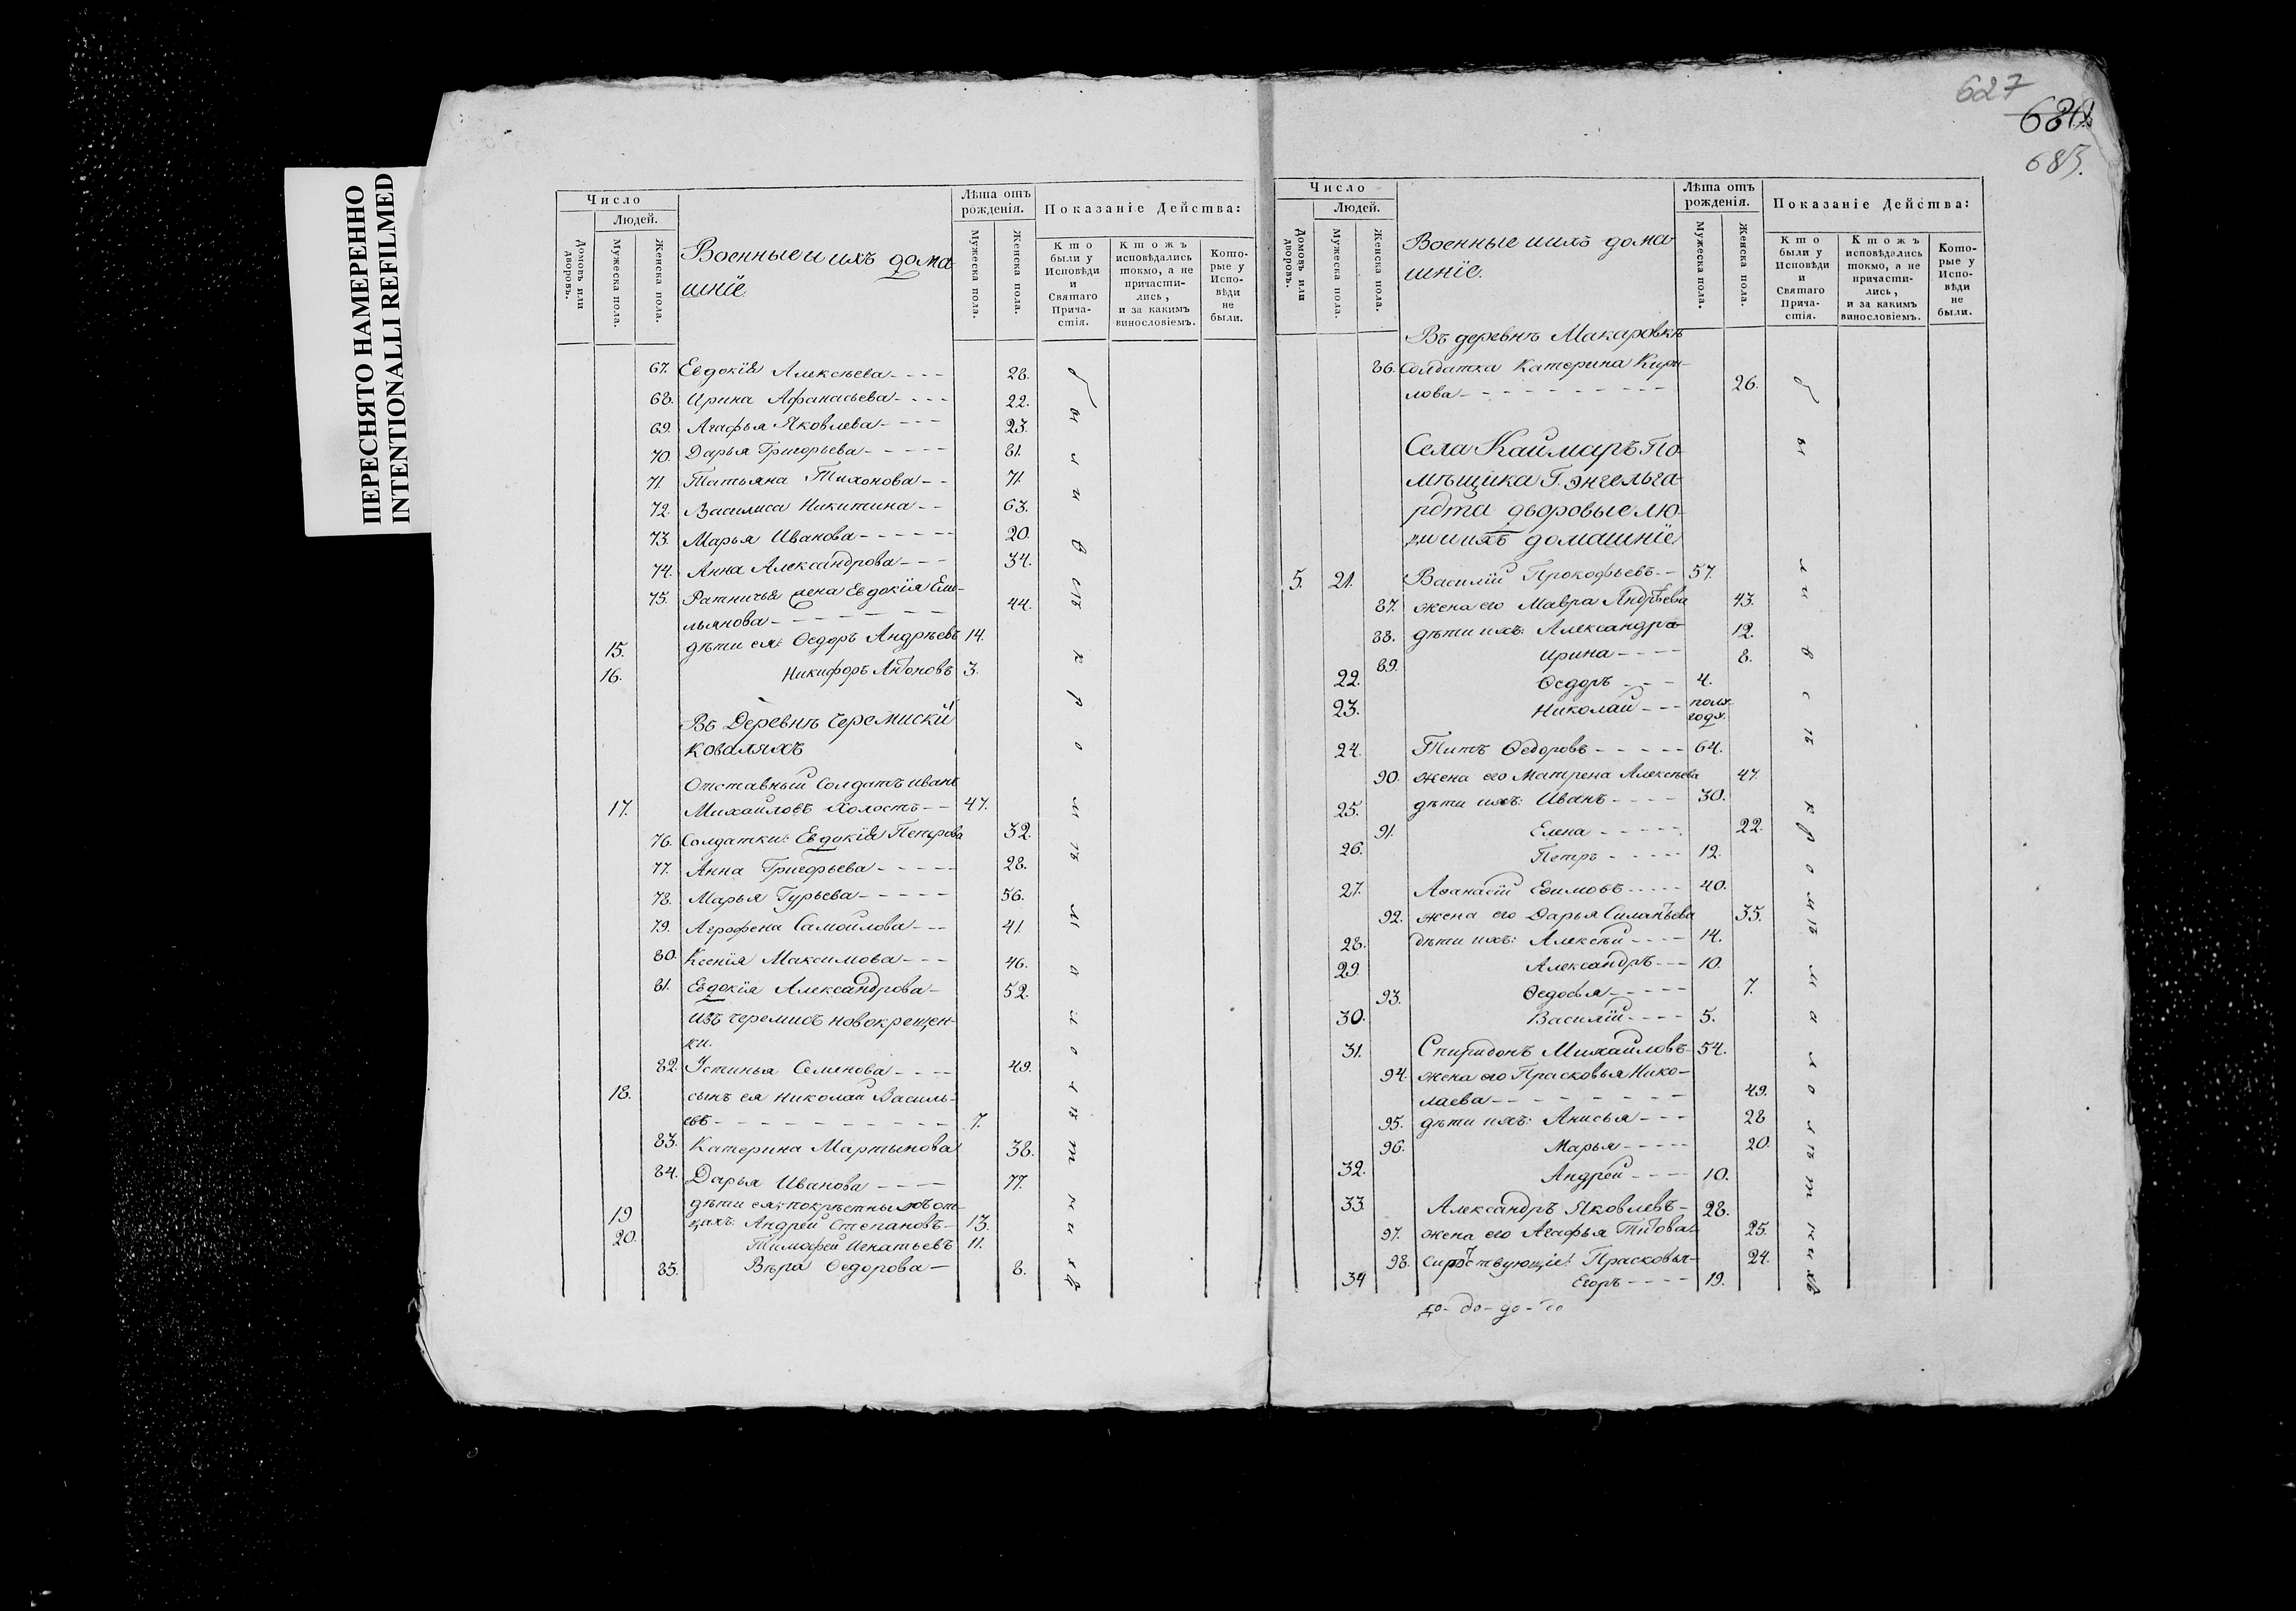 ПЕРЕСНЯТО НАМЕРЕННО
INTENTIONALLI REFILMED
627
685.
Число
Людей.
Домовъ или дворовъ.
Мужеска пола.
Женска пола.
Военные и ихъ дома
шніе.
Лѣта отъ рожденія.
Мужеска пола.
Женска пола.
Показаніе Действа:
Кто были у Исповѣди и Святаго Причастія.
Ктожъ исповѣдались токмо, а не причастились, и за какимъ винословіемъ.
Которые у Исповѣди не были.
67. Евдокія Алексѣева - - - - 28.
68. Ирина Афанасьева - - - - 22.
69. Агафья Яковлева - - - - 23.
70. Дарья Григорьева - - - - - 81.
71. Татьяна Тихонова - - 71.
72. Василиса Никитина - - 63.
73. Марья Иванова - - - - - - 20.
74. Анна Александрова - - - 34.
75. Ратничья жена Евдокія Еме-
льянова - - - - - - 44.
15. дѣти ея: Ѳедоръ Андрѣевъ 14.
16. Никифоръ Антоновъ 3.
Въ Деревнѣ Черемиски
Коваляхъ
Отставный Солдатъ Иванъ
17. Михайловъ Холостъ - - 47.
76. Солдатки: Евдокія Петрова 32.
77. Анна Григорьева - - - - - 28.
78. Марья Гурьева - - - - - 56.
79. Агрофена Самойлова - - - 41.
80. Ксенія Максимова - - - 46.
81. Евдокія Александрова - 52.
изъ черемисъ новокрещен-
ки.
82. Устинья Семенова - - - - 49.
18. сынъ ея Николай Василь-
евъ - - - - - - - - - - - 7.
83. Катерина Мартынова 38.
84. Дарья Иванова - - - - 77.
дѣти ея: покрѣстныхъ от-
19 цахъ: Андрей Степановъ - 13.
20. Тимофей Игнатьевъ 11.
85. Вѣра Ѳедорова - 8.
Число
Людей.
Домовъ или дворовъ.
Мужеска пола.
Женска пола.
Военные и ихъ дома
шніе.
Лѣта отъ рожденія.
Мужеска пола.
Женска пола.
Показаніе Действа:
Кто были у Исповѣди и Святаго Причастія.
Ктожъ исповѣдались токмо, а не причастились, и за какимъ винословіемъ.
Которые у Исповѣди не были.
Въ деревнѣ Макаровкѣ
86. Солдатка Катерина Кири-
лова - - - - - - - - - - 26.
Села Каймаръ По-
мѣщика Г. Энгельга-
рдта дворовые лю-
ди и ихъ домашніе
5. 21. Василій Прокофьевъ - - 57.
87. жена его Мавра Андрѣева 43.
88. дѣти ихъ: Александра 12.
89. Ирина - - - - 8.
22. Ѳедоръ - - - 4.
23. Николай - - - полъ
года.
24. Титъ Ѳедоровъ - - - - - 64.
90. жена его Матрена Алексѣева 47.
25. дѣти ихъ: Иванъ - - - - 30.
91. Елена - - - - - 22.
26. Петръ - - - - - 12.
27. Аѳанасій Еѳимовъ - - - - - 40.
92. жена его Дарья Силантьева 35.
28. дѣти ихъ: Алексѣй - - - - 14.
29 Александръ - - - 10.
93. Ѳедосья - - - - - 7.
30. Василій - - - - 5.
31. Спиридонъ Михайловъ - 54.
94. жена его Прасковья Нико-
лаева - - - - - - - - 49.
95. дѣти ихъ: Анисья - - - 28
96. Марья - - - - - 20.
32. Андрей - - - - 10.
33. Александръ Яковлевъ - 28.
97. жена его Агафья Титова 25.
98. Сиротствующіе: Прасковья - 24.
34 Егоръ - - - - 19.